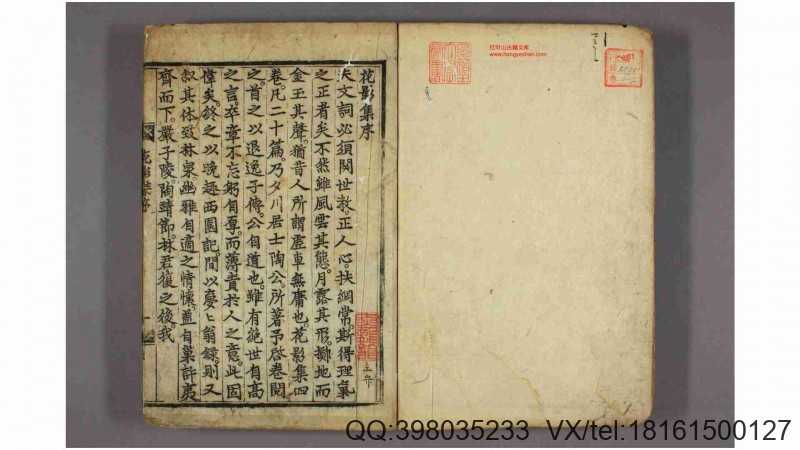 花影集序
夫文詞必須関世教。正人心。扶綱常。斯得理氣
之正者矣不然雖風雲其態。月露其形。擲地而
金玉其聲。猶昔人所謂虛車無庸也。花影集四
卷。凡二十篇。乃夕川居士陶公。所著予啓卷閱
之首之以退逸子傳。公自道也。雖有絶世自高
之言。卒章不忘躬自厚。而薄責於人之意。此固
偉矣。終之以晚趣西園記。間以夢夢翁錄。則又
叙其休致林泉幽雅自適之情懷。直自巢許夷
齊而下。嚴子陵。陶靖節。林君復之後。我
花影集序
红叶山古籍文库
www.hongyeshan.com
QQ:398035233 VX/tel:18161500127